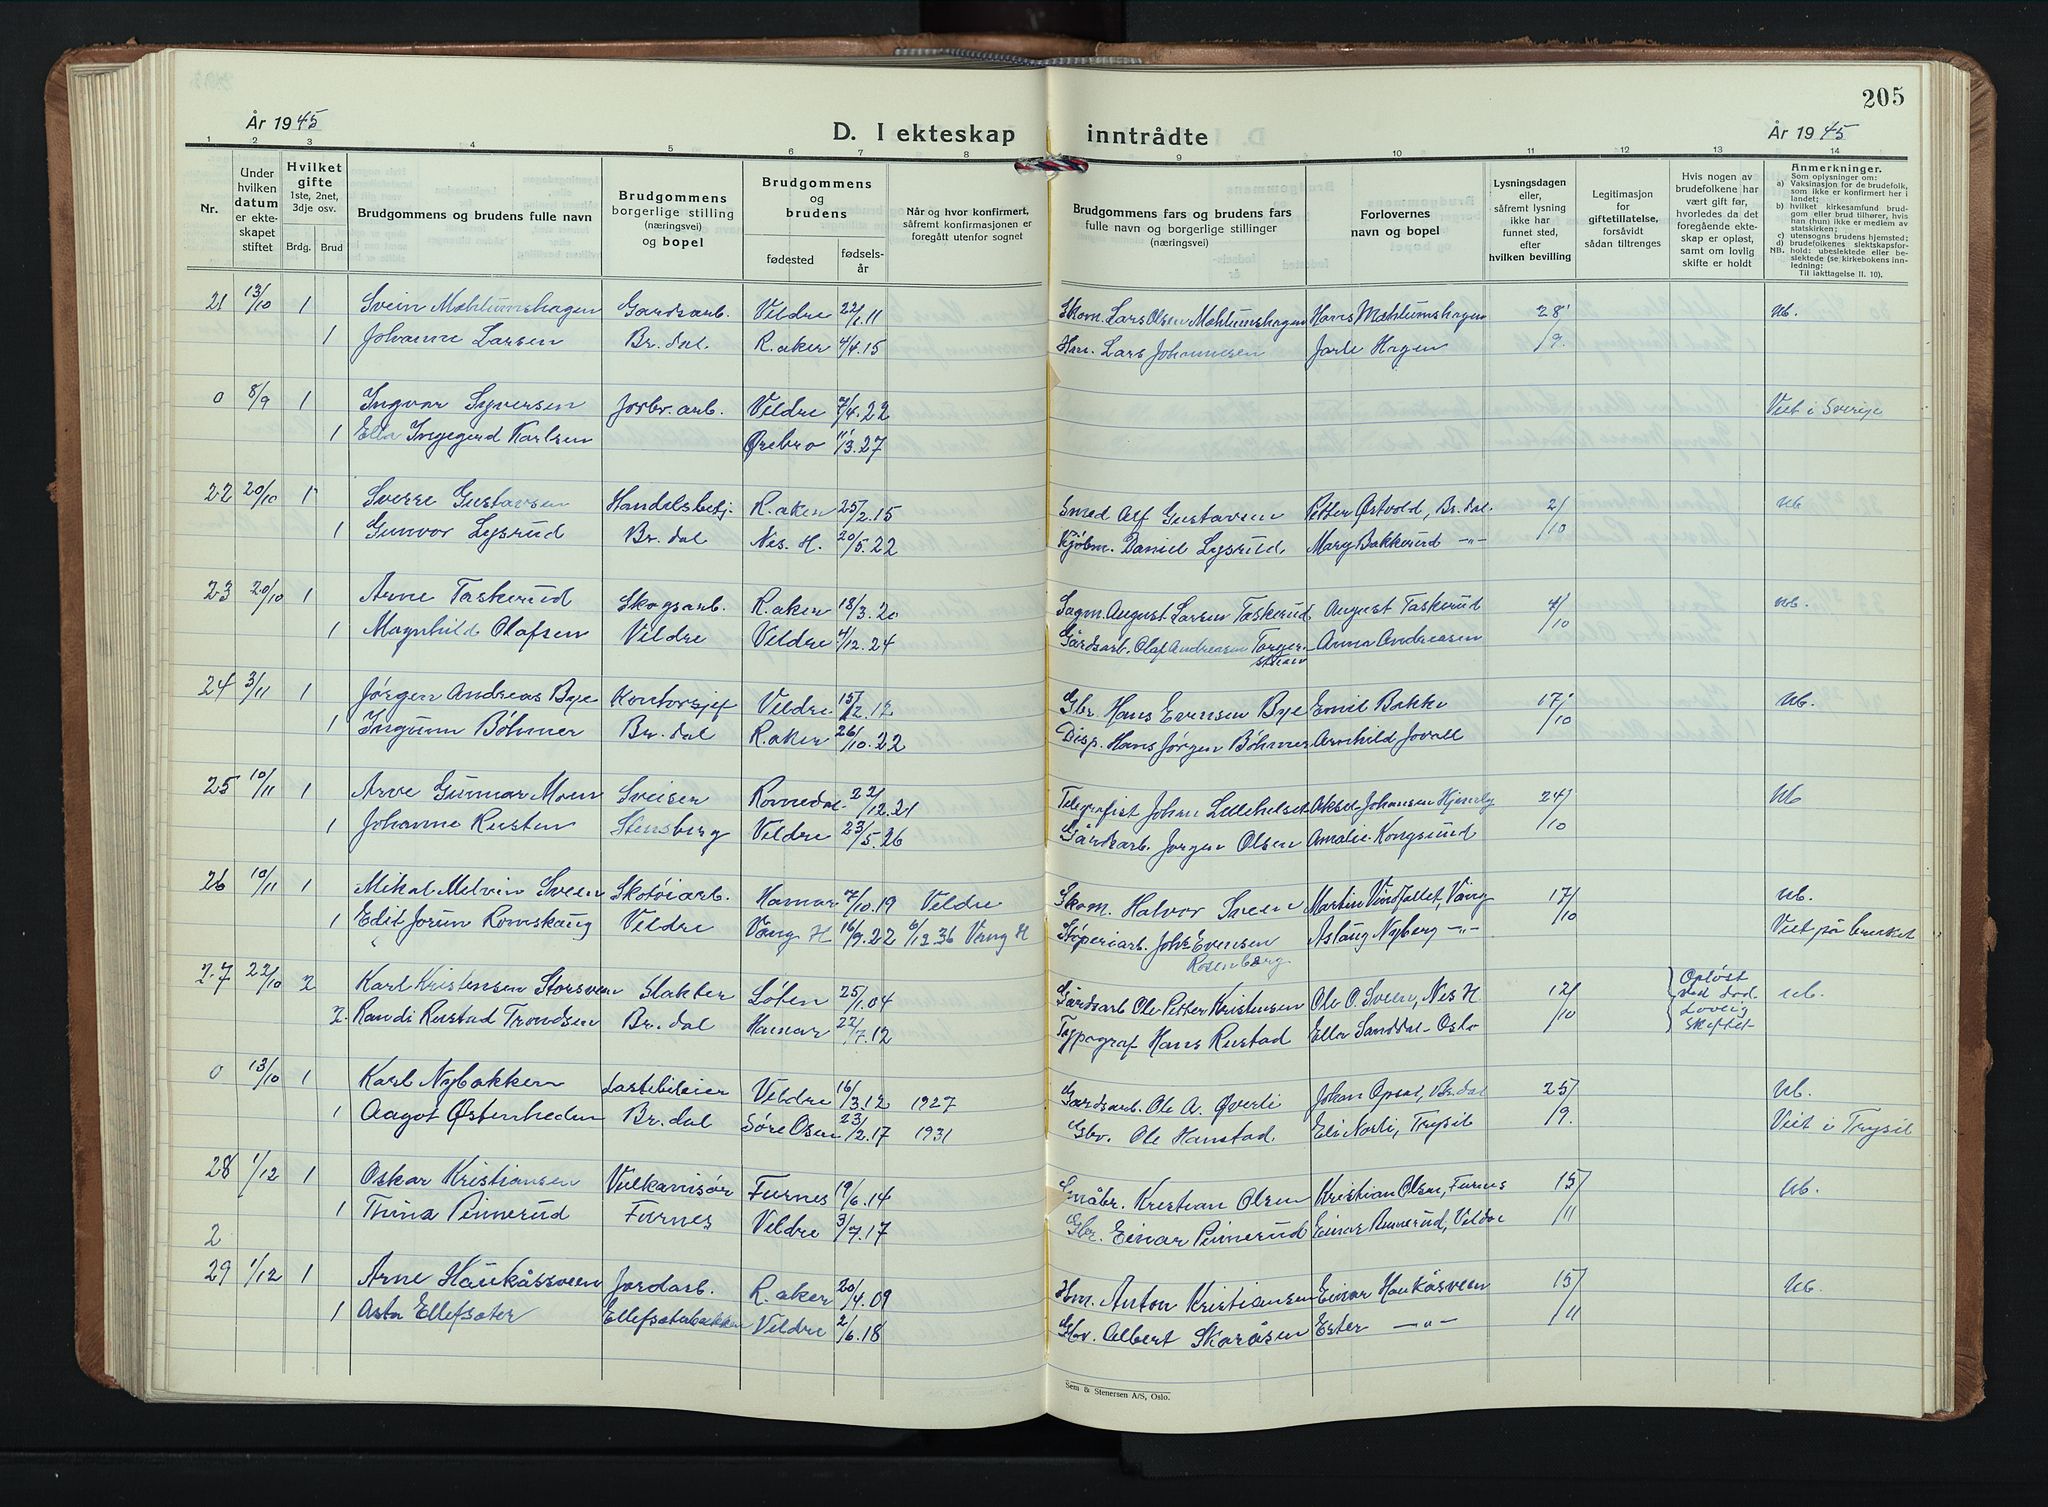 205
År 1945
D. I ekteskap inntrådte
År 1945
1 2 3 4 5 6 7 8 9 10 11 12 13 14
Nr.
Under hvilken datum er ekteskapet stiftet
Hvilket gifte 1ste, 2net, 3dje osv.
Brdg. Brud
Brudgommens og brudens fulle navn
Brudgommens borgerlige stilling (næringsvei) og bopel
Brudgommens og brudens
fødested fødselsår
Når og hvor konfirmert, såfremt konfirmasjonen er foregått utenfor sognet
Brudgommens fars og brudens fars fulle navn og borgerlige stillinger (næringsvei)
Forlovernes navn og bopel
Lysningsdagen eller, såfremt lysning ikke har funnet sted, efter hvilken bevilling
Legitimasjon for giftetillatelse, forsåvidt sådan tiltrenges
Hvis nogen av brudefolkene har vært gift før, hvorledes da det foregående ekteskap er opløst, samt om lovlig skifte er holdt
Anmerkninger.
Som oplysninger om:
a) Vaksinasjon for de brudefolk, som ikke er konfirmert her i landet;
b) hvilket kirkesamfund brudgom eller brud tilhører, hvis han (hun) ikke er medlem av statskirken;
c) utensogns brudens hjemsted;
d) brudefolkenes slektskapsforhold: ubeslektede eller beslektede (se kirkebokens innledning:
NB. Til iakttagelse II. 10).
21 13/10 1 Svein Mæhlumshagen Gardsarb. Veldre 22/1.11 Skom. Lars Olsen Mæhlumshagen Hans Mæhlumshagen 28/9. ub.
1 Johanne Larsen Br.dal. R.aker 4/4.15 Hm. Lars Johannesen Jarle Hagen
0 8/9 1 Ingvar Syversen Jordbr.arb. Veldre 7/4.22 Viet i Sverige
1 Ella Ingegerd Karlsen Ørebro 11/3.27
22 20/10 1 Sverre Gustavsen Handelsbetj. R.aker 25/2.15 Smed Alf Gustavsen Petter Østvold, Br.dal. 2/10 ub
1 Gunvor Lysrud Br.dal Nes. H. 20/5.22 Kjøbm. Daniel Lysrud Mary Bakkerud -"-
23 20/10 1 Arne Taskerud Skogsarb. R.aker 18/3.20 Sagm. August Larsen Taskerud August Taskerud 4/10 ub.
1 Magnhild Olafsen Veldre Veldre 4/12.24 Gårdsarb. Olaf Andreasen Torgerstuen Anna Andreasen
24 3/11 1 Jørgen Andreas Bye Kontorsjef Veldre 15/12.12 Gbr. Hans Evensen Bye Emil Bakke 17/10 ub.
1 Ingunn Böhmer Br.dal R.aker 26/10.22 Disp. Hans Jørgen Böhmer Arnhild Jovall
25 10/11 1 Arve Gunnar Moen Sveiser Romedal 22/12.21 Telegrafist Johan Lillehelset Aksel Johansen Hjemly 24/10 ub
1 Johanne Rusten Stensberg Veldre 23/5.26 Gårdsarb. Jørgen Olsen Amalie Kongsrud
26 10/11 1 Mikal Melvin Sveen Skotøiarb. Hamar 7/10.19 Veldre Skom. Halvor Sveen Martin Vindfallet, Vang 17/10 ub.
1 Edit Jorun Romskaug Veldre Vang H 16/9.22 6/12 36 Vang H Støperiarb. Johs Evensen Rosenberg Aslaug Nyberg -"- Viet på bruket
27 22/10 2 Karl Kristensen Storsveen Slakter Løten 25/1.04 Gårdsarb Ole Petter Kristensen Ole O. Sveen, Nes H. 12/10 Opløst ved død. Lovlig skiftet ub.
2. Randi Rustad Trondsen Br.dal Hamar 22/7.12 Typograf Hans Rustad Ella Sanddal - Oslo
0 13/10 1 Karl Nybakken Lastebileier Veldre 16/3.12 1927 Gardsarb. Ole A. Øverli Johan Opsal, Br.dal 25/9. ub.
1 Aagot Østenheden Br.dal Søre Osen 23/2.17 1931 Gbr. Ole Hanstad Eli Norli, Trysil Viet i Trysil
28 1/12 1 Oskar Kristiansen Vulkanisør Furnes 19/6.14 Småbr. Kristian Olsen Kristian Olsen, Furnes 15/11 ub.
1 Thina Pinnerud Furnes Veldre 3/7.17 Gbr. Einar Pinnerud Einar Pinnerud, Veldre
2
29 1/12 1 Arne Haukåssveen Jordarb. R.aker 20/4.09 Hm. Anton Kristiansen Einar Haukåsveen 15/11 ub.
1 Asta Ellefsæter Ellefsæterbakken Veldre 2/6.18 Gbr. Albert Skaråsen Ester -"-
Sem & Stenersen A/S, Oslo.